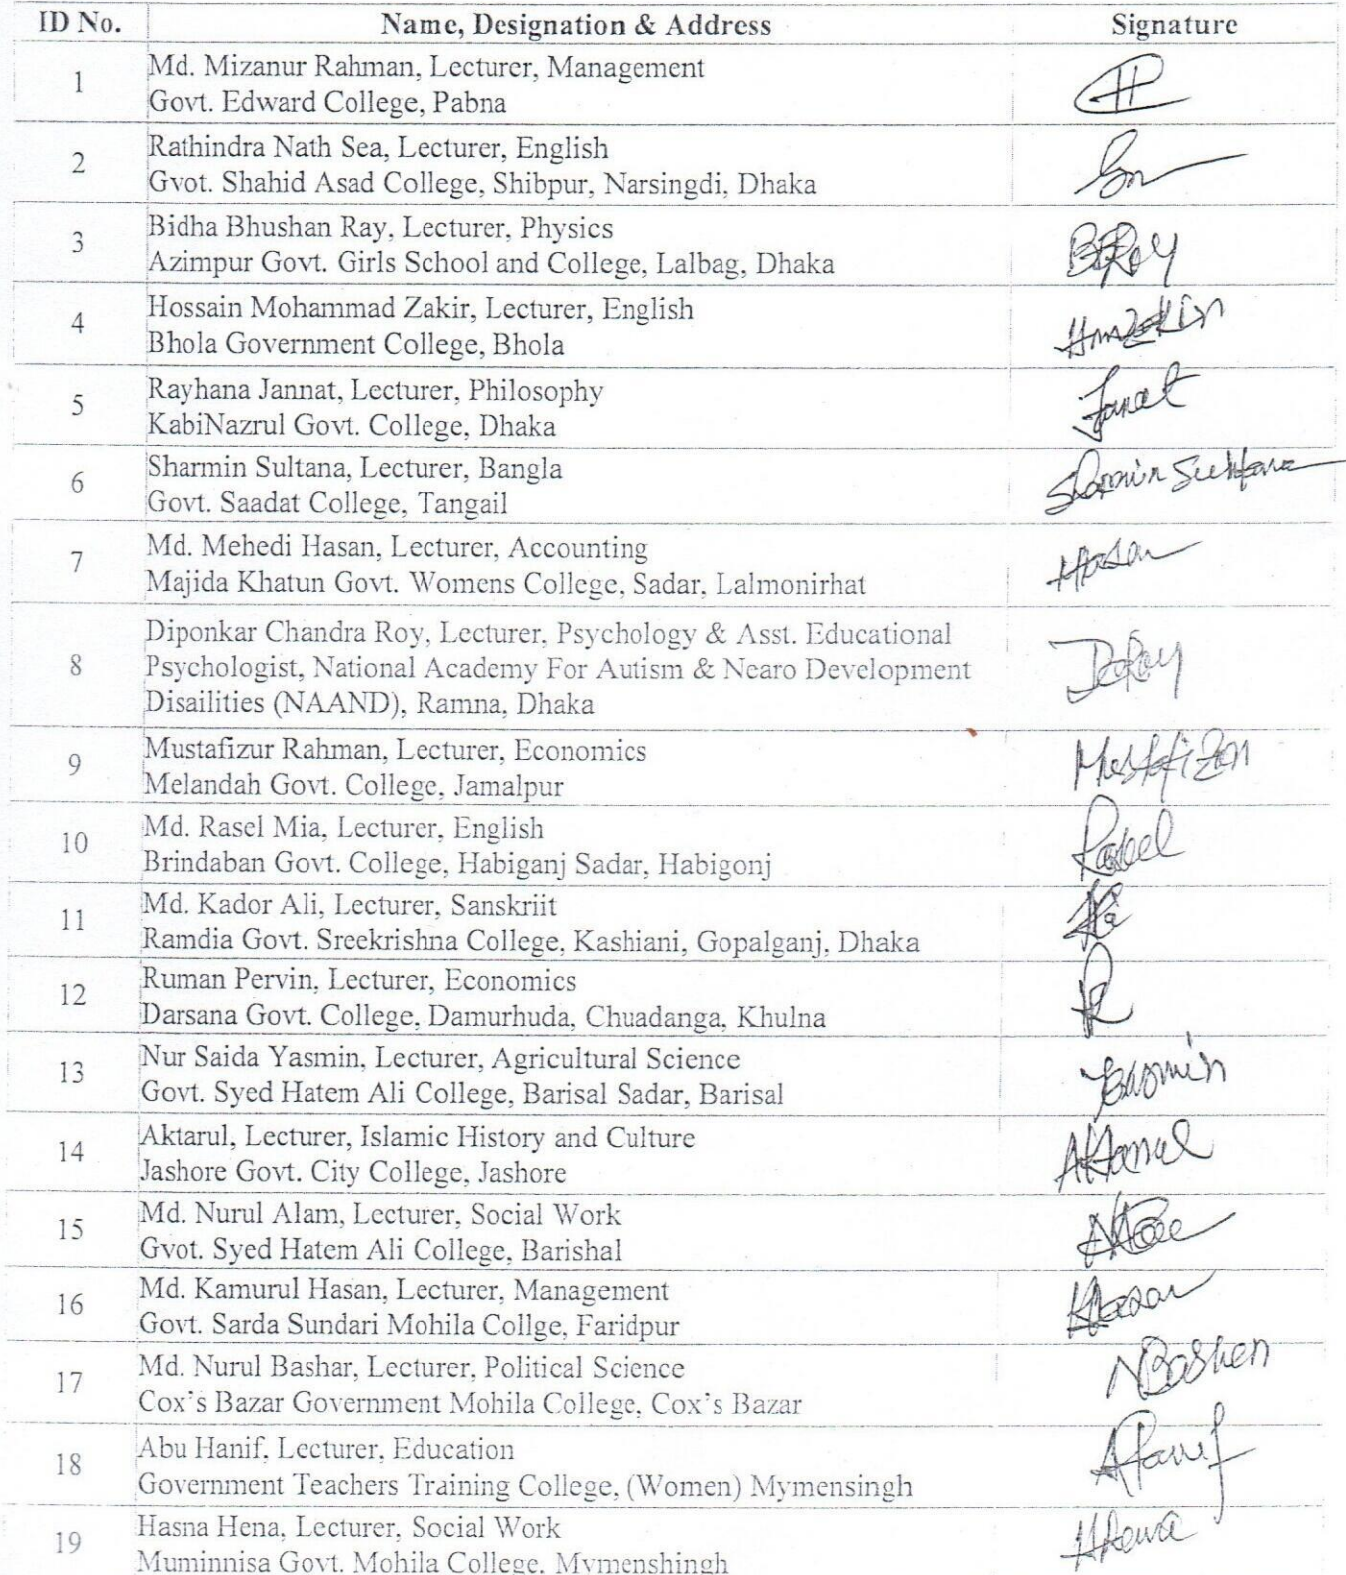 ID No. Name, Designation & Address Signature
1 Md. Mizanur Rahman, Lecturer, Management
Govt. Edward College, Pabna
2 Rathindra Nath Sea, Lecturer, English
Gvot. Shahid Asad College, Shibpur, Narsingdi, Dhaka
3 Bidha Bhushan Ray, Lecturer, Physics
Azimpur Govt. Girls School and College, Lalbag, Dhaka
4 Hossain Mohammad Zakir, Lecturer, English
Bhola Government College, Bhola
5 Rayhana Jannat, Lecturer, Philosophy
KabiNazrul Govt. College, Dhaka
6 Sharmin Sultana, Lecturer, Bangla
Govt. Saadat College, Tangail
7 Md. Mehedi Hasan, Lecturer, Accounting
Majida Khatun Govt. Womens College, Sadar, Lalmonirhat
8 Diponkar Chandra Roy, Lecturer, Psychology & Asst. Educational
Psychologist, National Academy For Autism & Nearo Development
Disailities (NAAND), Ramna, Dhaka
9 Mustafizur Rahman, Lecturer, Economics
Melandah Govt. College, Jamalpur
10 Md. Rasel Mia, Lecturer, English
Brindaban Govt. College, Habiganj Sadar, Habigonj
11 Md. Kador Ali, Lecturer, Sanskriit
Ramdia Govt. Sreekrishna College, Kashiani, Gopalganj, Dhaka
12 Ruman Pervin, Lecturer, Economics
Darsana Govt. College, Damurhuda, Chuadanga, Khulna
13 Nur Saida Yasmin, Lecturer, Agricultural Science
Govt. Syed Hatem Ali College, Barisal Sadar, Barisal
14 Aktarul, Lecturer, Islamic History and Culture
Jashore Govt. City College, Jashore
15 Md. Nurul Alam, Lecturer, Social Work
Gvot. Syed Hatem Ali College, Barishal
16 Md. Kamurul Hasan, Lecturer, Management
Govt. Sarda Sundari Mohila Collge, Faridpur
17 Md. Nurul Bashar, Lecturer, Political Science
Cox's Bazar Government Mohila College, Cox's Bazar
18 Abu Hanif, Lecturer, Education
Government Teachers Training College, (Women) Mymensingh
19 Hasna Hena, Lecturer, Social Work
Muminnisa Govt. Mohila College, Mymenshingh